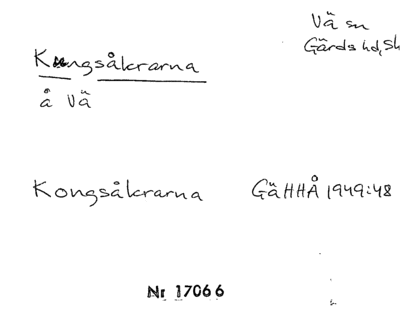 Vä sn
Gärds hd, Sk
Kungsåkrarna
å Vä
Kongsåkrarna GäHHÅ 1949:48
Nr 17066